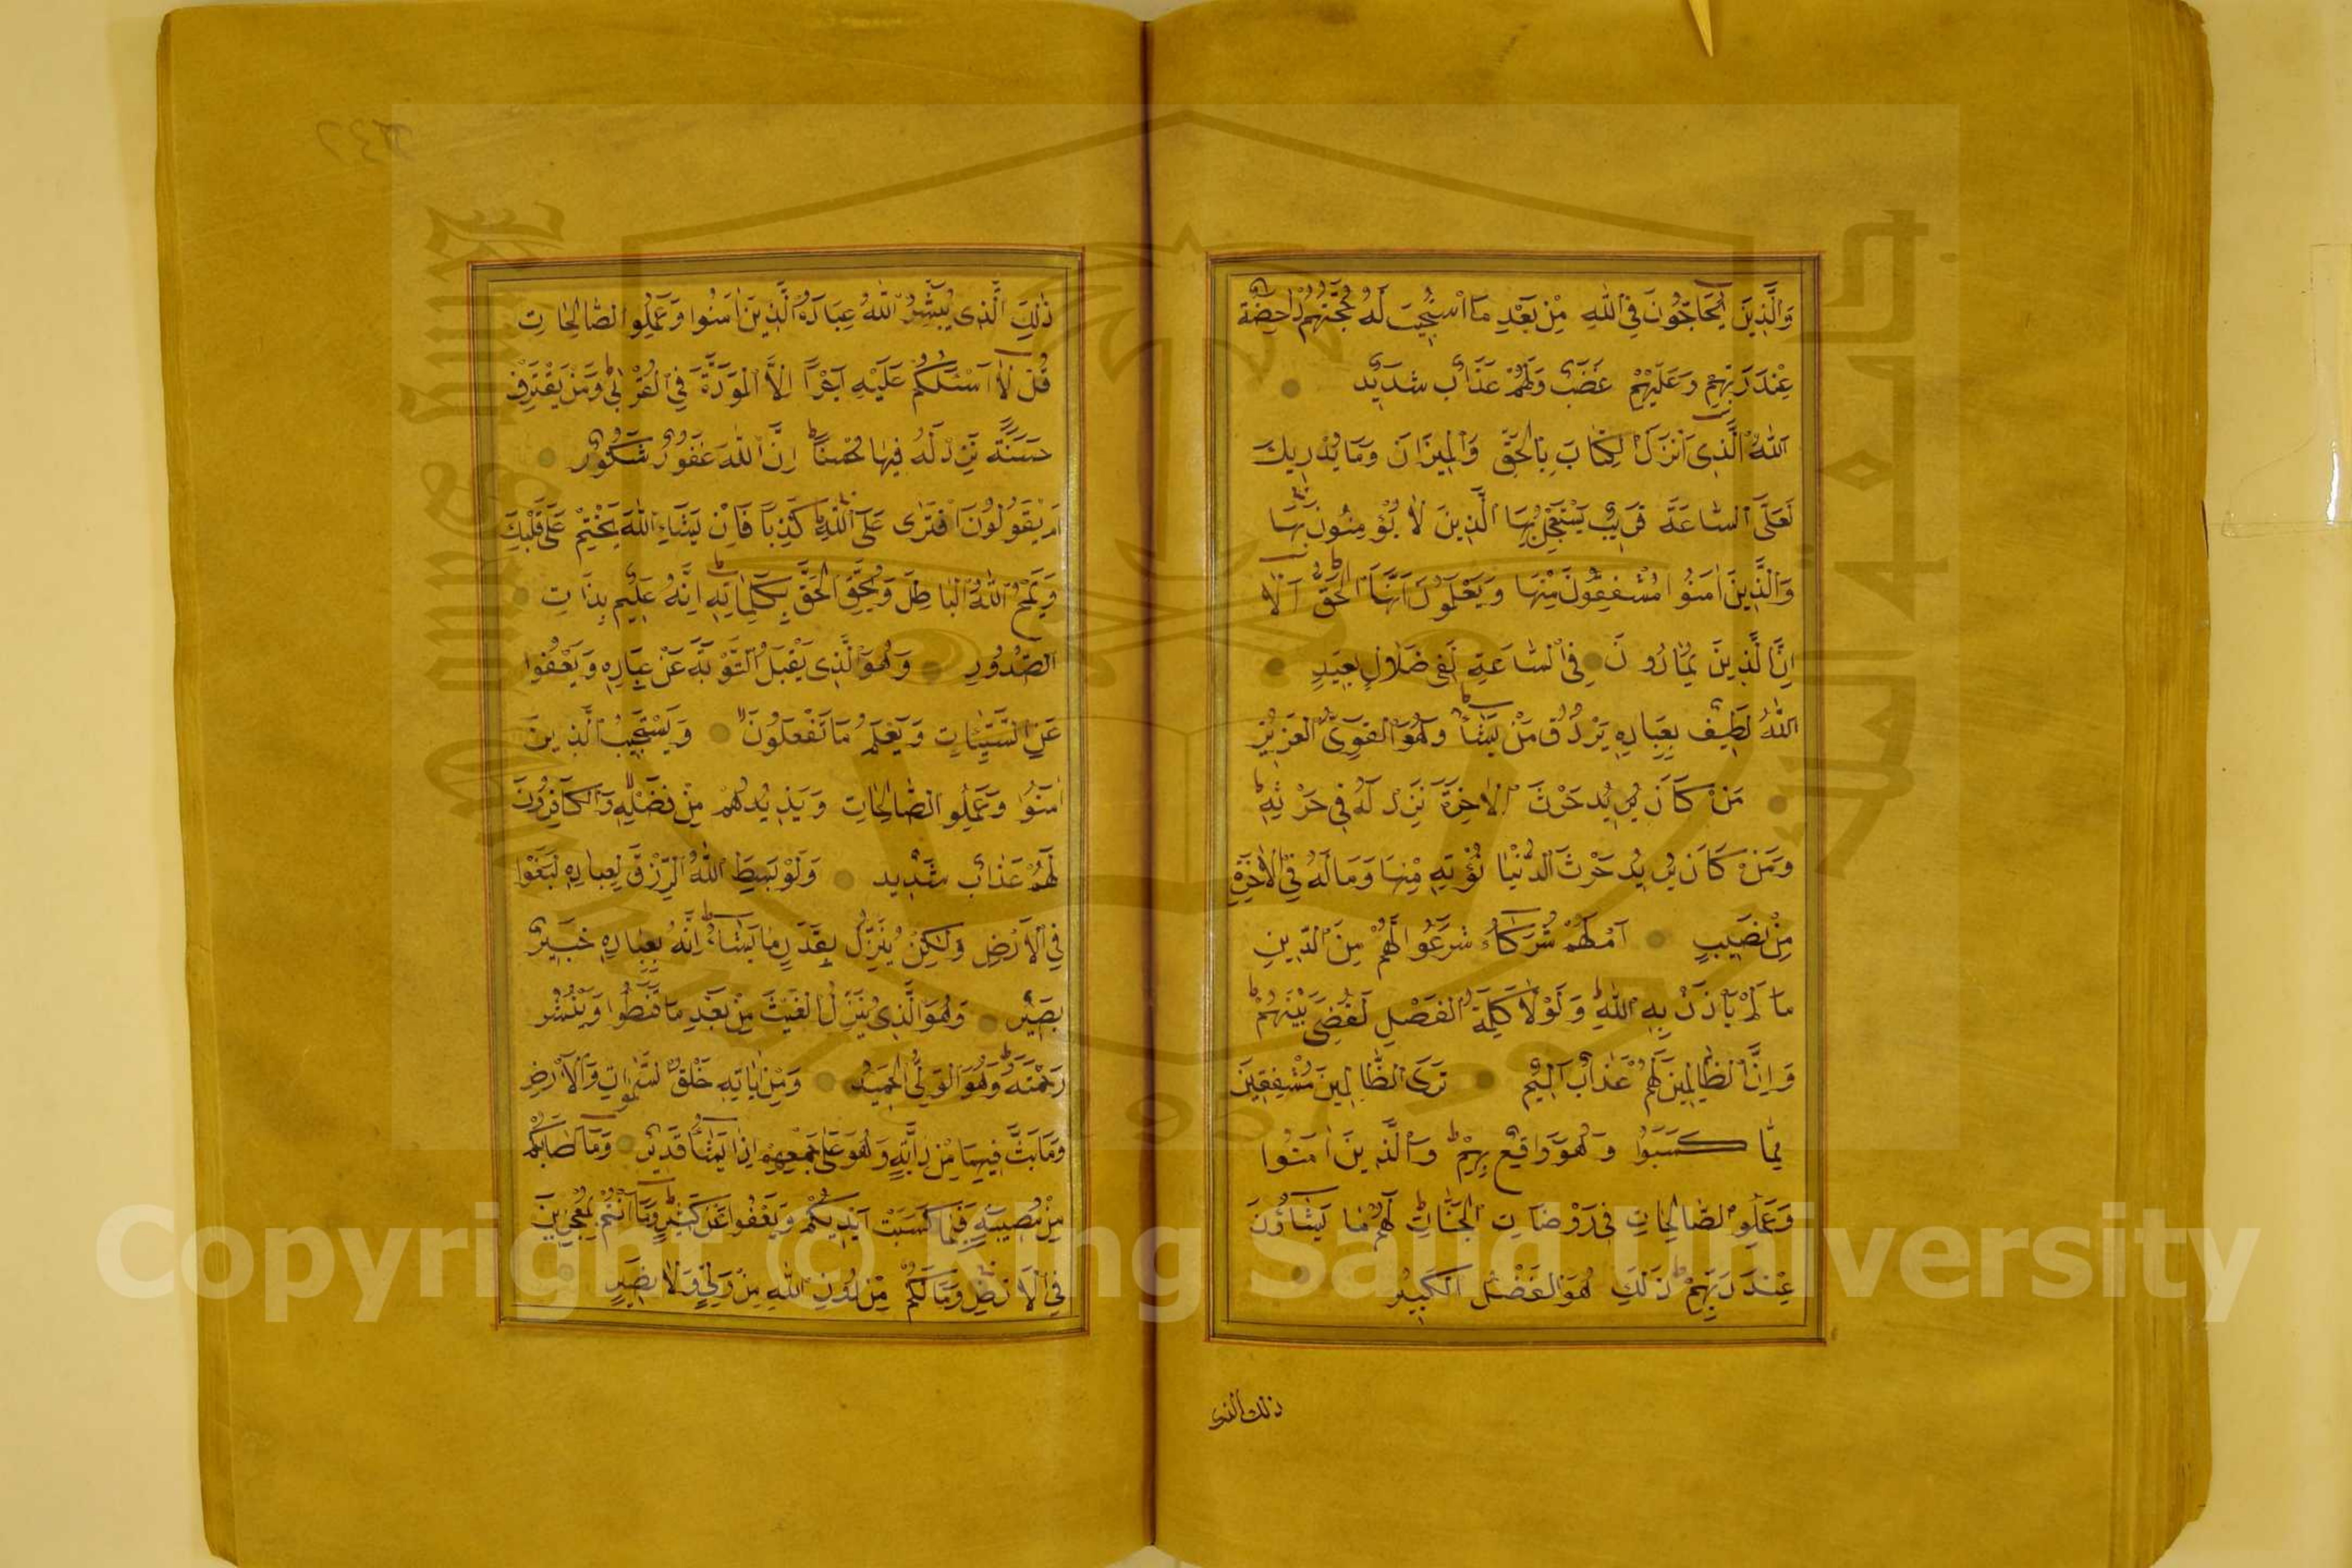 وَالَّذِينَ يُحَاجُّونَ فِي اللَّهِ مِنْ بَعْدِ مَا اسْتُجِيبَ لَهُ حُجَّتُهُمْ دَاحِضَةٌ
عِنْدَ رَبِّهِمْ وَعَلَيْهِمْ غَضَبٌ وَلَهُمْ عَذَابٌ شَدِيدٌ
اَللَّهُ الَّذِي اَنْزَلَ الْكِتَابَ بِالْحَقِّ وَالْمِيزَانَ وَمَا يُدْرِيكَ
لَعَلَّ السَّاعَةَ قَرِيبٌ يَسْتَعْجِلُ بِهَا الَّذِينَ لَا يُؤْمِنُونَ بِهَا
وَالَّذِينَ اٰمَنُوا مُشْفِقُونَ مِنْهَا وَيَعْلَمُونَ اَنَّهَا الْحَقُّ اَلَا
اِنَّ الَّذِينَ يُمَارُونَ فِي السَّاعَةِ لَفِي ضَلَالٍ بَعِيدٍ
اَللَّهُ لَطِيفٌ بِعِبَادِهِ يَرْزُقُ مَنْ يَشَاءُ وَهُوَ الْقَوِيُّ الْعَزِيزُ
مَنْ كَانَ يُرِيدُ حَرْثَ الْاٰخِرَةِ نَزِدْ لَهُ فِي حَرْثِهِ
وَمَنْ كَانَ يُرِيدُ حَرْثَ الدُّنْيَا نُؤْتِهِ مِنْهَا وَمَا لَهُ فِي الْاٰخِرَةِ
مِنْ نَصِيبٍ اَمْ لَهُمْ شُرَكَاءُ شَرَعُوا لَهُمْ مِنَ الدِّينِ
مَا لَمْ يَأْذَنْ بِهِ اللَّهُ وَلَوْلَا كَلِمَةُ الْفَصْلِ لَقُضِيَ بَيْنَهُمْ
وَاِنَّ الظَّالِمِينَ لَهُمْ عَذَابٌ اَلِيمٌ تَرَى الظَّالِمِينَ مُشْفِقِينَ
مِمَّا كَسَبُوا وَهُوَ وَاقِعٌ بِهِمْ وَالَّذِينَ اٰمَنُوا
وَعَمِلُوا الصَّالِحَاتِ فِي رَوْضَاتِ الْجَنَّاتِ لَهُمْ مَا يَشَاؤُنَ
عِنْدَ رَبِّهِمْ ذَلِكَ هُوَ الْفَضْلُ الْكَبِيرُ
ذلك الذى
ذٰلِكَ الَّذِي يُبَشِّرُ اللَّهُ عِبَادَهُ الَّذِينَ اٰمَنُوا وَعَمِلُوا الصَّالِحَاتِ
قُلْ لَا اَسْئَلُكُمْ عَلَيْهِ اَجْرًا اِلَّا الْمَوَدَّةَ فِي الْقُرْبٰى وَمَنْ يَقْتَرِفْ
حَسَنَةً نَزِدْ لَهُ فِيهَا حُسْنًا اِنَّ اللَّهَ غَفُورٌ شَكُورٌ
اَمْ يَقُولُونَ افْتَرٰى عَلَى اللَّهِ كَذِبًا فَاِنْ يَشَاءِ اللَّهُ يَخْتِمْ عَلٰى قَلْبِكَ
وَيَمْحُ اللَّهُ الْبَاطِلَ وَيُحِقُّ الْحَقَّ بِكَلِمَاتِهِ اِنَّهُ عَلِيمٌ بِذَاتِ
الصُّدُورِ وَهُوَ الَّذِي يَقْبَلُ التَّوْبَةَ عَنْ عِبَادِهِ وَيَعْفُوا
عَنِ السَّيِّئَاتِ وَيَعْلَمُ مَا تَفْعَلُونَ وَيَسْتَجِيبُ الَّذِينَ
اٰمَنُوا وَعَمِلُوا الصَّالِحَاتِ وَيَزِيدُهُمْ مِنْ فَضْلِهِ وَالْكَافِرُونَ
لَهُمْ عَذَابٌ شَدِيدٌ وَلَوْ بَسَطَ اللَّهُ الرِّزْقَ لِعِبَادِهِ لَبَغَوْا
فِي الْاَرْضِ وَلٰكِنْ يُنَزِّلُ بِقَدَرٍ مَا يَشَاءُ اِنَّهُ بِعِبَادِهِ خَبِيرٌ
بَصِيرٌ وَهُوَ الَّذِي يُنَزِّلُ الْغَيْثَ مِنْ بَعْدِ مَا قَنَطُوا وَيَنْشُرُ
رَحْمَتَهُ وَهُوَ الْوَلِيُّ الْحَمِيدُ وَمِنْ اٰيَاتِهِ خَلْقُ السَّمٰوَاتِ وَالْاَرْضِ
وَمَا بَثَّ فِيهِمَا مِنْ دَابَّةٍ وَهُوَ عَلٰى جَمْعِهِمْ اِذَا يَشَاءُ قَدِيرٌ وَمَا اَصَابَكُمْ
مِنْ مُصِيبَةٍ فَبِمَا كَسَبَتْ اَيْدِيكُمْ وَيَعْفُوا عَنْ كَثِيرٍ وَمَا اَنْتُمْ بِمُعْجِزِينَ
فِي الْاَرْضِ وَمَا لَكُمْ مِنْ دُونِ اللَّهِ مِنْ وَلِيٍّ وَلَا نَصِيرٍ
Copyright © King Saud University
1957